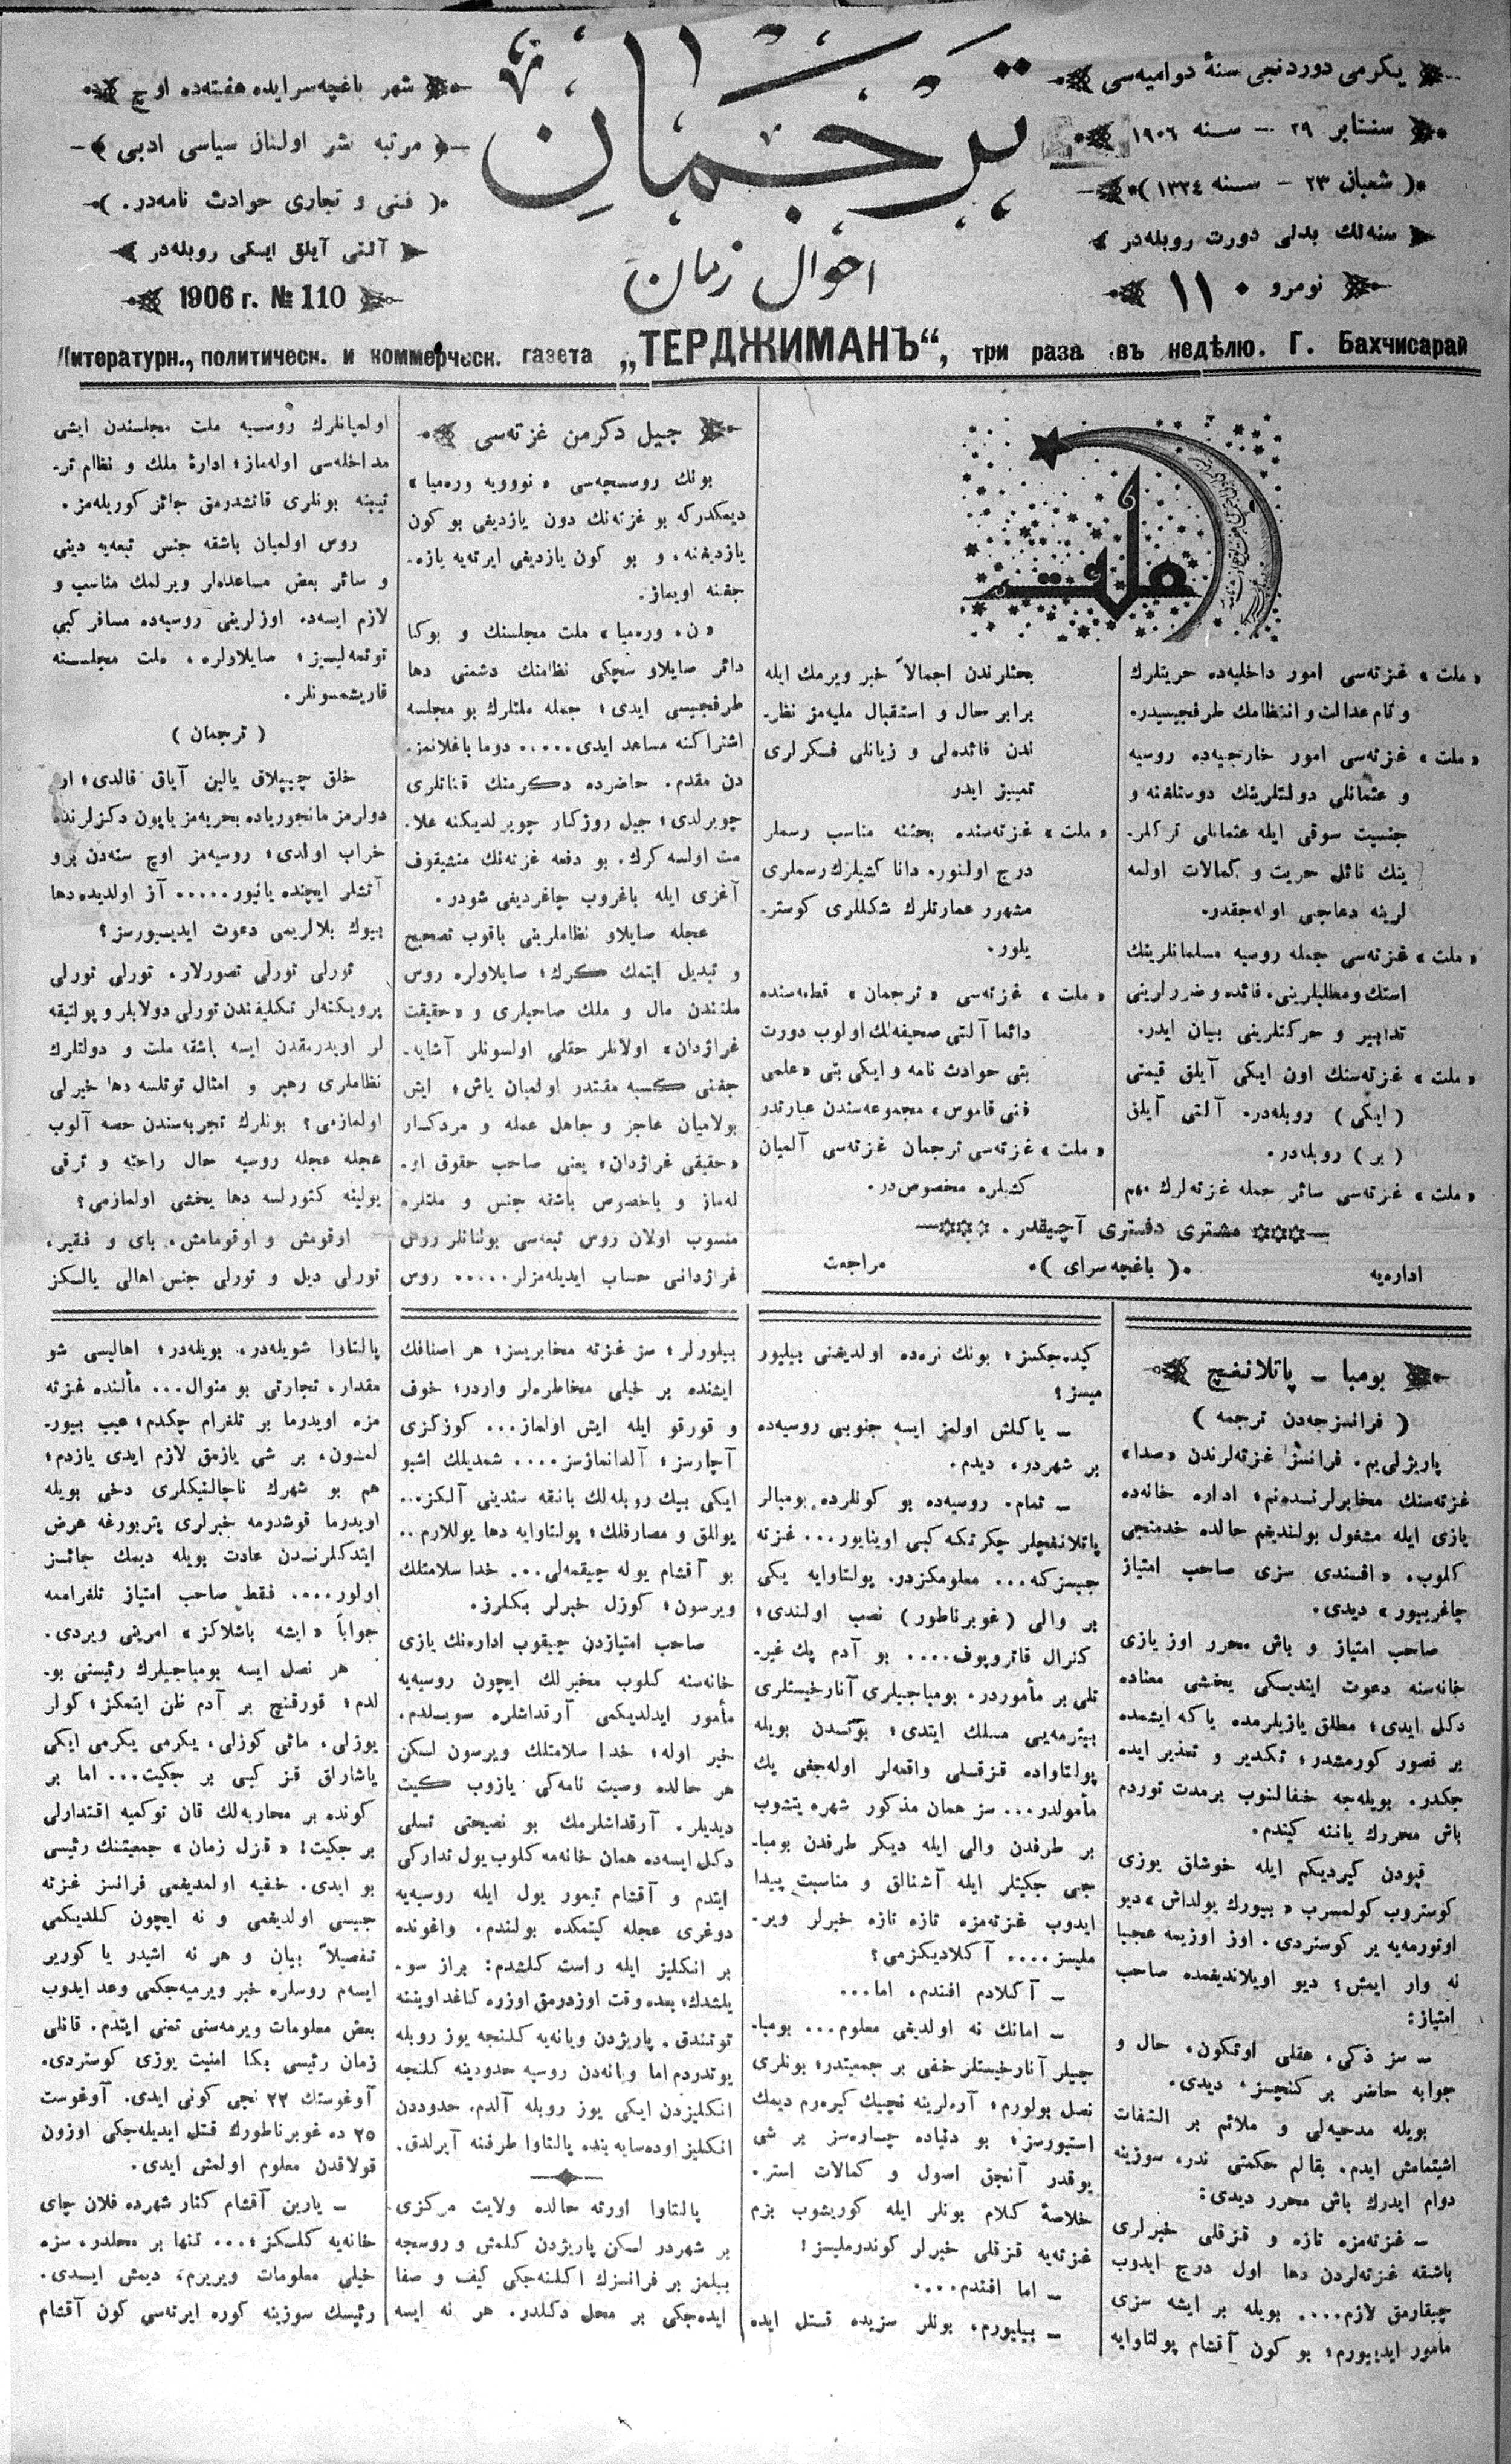 يكرمی دوردنجی سنهٔ دواميه‌سی
سنتابر ٢٩ — سنه ١٩٠٦
( شعبان ٢٣ — سنه ١٣٢٤ )
سنه‌لك بدلی دورت روبله‌در
نومرو ١١٠
ترجمان
احوال زمان
شهر باغچه‌سرايده هفته‌ده اوچ
مرتبه نشر اولنان سياسی ادبی
( فنی و تجاری حوادث نامه‌در. )
آلتی آيلق ايكی روبله‌در
1906 г. № 110
Литературн., политическ. и коммерческ. газета „ТЕРДЖИМАНЪ“, три раза въ недѣлю. Г. Бахчисарай
ملت
« ملت » غزته‌سی امور داخليه‌ده حريتلرك
و تام عدالت و انتظامك طرفجيسيدر.
« ملت » غزته‌سی امور خارجيه‌ده روسيه
و عثمانلی دولتلرينك دوستلغنه و
جنسيت سوقی ايله عثمانلی تركلر‌-
ينك نائل حريت و كمالات اولمه
لرينه دعاجی اوله‌جقدر.
« ملت » غزته‌سی جمله روسيه مسلمانلرينك
استك و مطلبلرينی، فائده و ضررلرينی
تدابير و حركتلرينی بيان ايدر.
« ملت » غزته‌سنك اون ايكی آيلق قيمتی
( ايكی ) روبله‌در. آلتی آيلق
( بر ) روبله‌در.
« ملت » غزته‌سی سائر جمله غزته‌لرك مهم
بحثلرندن اجمالاً خبر ويرمك ايله
برابر حال و استقبال مليه‌مز نظر-
ندن فائده‌لی و زيانلی فكرلری
تمييز ايدر
« ملت » غزته‌سنده بحثنه مناسب رسملر
درج اولنور. دانا كشيلرك رسملری
مشهور عمارتلرك شكللری كوستر-
يلور.
« ملت » غزته‌سی « ترجمان » قطعه‌سنده
دائما آلتی صحيفه‌لك اولوب دورت
بتی حوادث نامه و ايكی بتی « علمی
فنی قاموس » مجموعه‌سندن عبارتدر
« ملت » غزته‌سی ترجمان غزته‌سی آلميان
كشيلره مخصوص‌در.
مشتری دفتری آچيقدر.
اداره‌يه ( باغچه سرای ) مراجعت
جيل دكرمن غزته‌سی
بونك روسچه‌سی « نوويه وره‌ميا »
ديمكدركه بو غزته‌نك دون يازديغی بو كون
يازديغنه، و بو كون يازديغی ايرته‌يه يازه-
جغنه اويماز.
« ن. وره‌ميا » ملت مجلسنك و بوكا
دائر صايلاو سچكی نظامنك دشمنی دها
طرفجيسی ايدی؛ جمله ملتلرك بو مجلسه
اشتراكنه مساعد ايدی..... دوما باغلانمز-
دن مقدم. حاضرده دكرمنك قناتلری
چويرلدی؛ جيل روزكار چويرلديكنه علا-
مت اولسه كرك. بو دفعه غزته‌نك منشيقوف
آغزی ايله باغروب چاغرديغی شودر.
عجله صايلاو نظاملرينی باقوب تصحيح
و تبديل ايتمك كرك؛ صايلاولره روس
ملتندن مال و ملك صاحبلری و « حقيقت
غراژدان » اولانلر حقلی اولسونلر آشايه-
جغنی كسبه مقتدر اولميان ياش؛ ايش
بولاميان عاجز و جاهل عمله و مردكار
« حقيقی غراژدان » يعنی صاحب حقوق او-
له‌ماز و باخصوص باشقه جنس و ملتلره
منسوب اولان روس تبعه‌سی بولنانلر روس
غراژدانی حساب ايديله‌مزلر..... روس
اولميانلرك روسيه ملت مجلسندن ايشی
مداخله‌سی اوله‌ماز؛ ادارهٔ ملك و نظام تر-
تيبنه بونلری قاتشدرمق جائز كوريله‌مز.
روس اولميان باشقه جنس تبعه‌يه دينی
و سائر بعض مساعده‌لر ويرلمك مناسب و
لازم ايسه‌ده اوزلرينی روسيه‌ده مسافر كبی
توتمه‌ليز؛ صايلاولره، ملت مجلسنه
قاريشمسونلر.
( ترجمان )
خلق چيپلاق يالين آياق قالدی؛ ار
دولرمز مانجورياده بحريه‌مز ياپون دكزلرنده
خراب اولدی؛ روسيه‌مز اوچ سنه‌دن برو
آتشلر ايچنده يانيور..... آز اولديده دها
بيوك بلالريمی دعوت ايديورسز؟
تورلی تورلی تصورلار، تورلی تورلی
پرويكته‌لر تكليفندن تورلی دولابلر و پولتيقه
لر اويدرمقدن ايسه باشقه ملت و دولتلرك
نظاملری رهبر و امثال توتلسه دها خيرلی
اولمازمی؟ بونلرك تجربه‌سندن حصه آلوب
عجله عجله روسيه حال راحته و ترقی
يولينه كتورلسه دها يخشی اولمازمی؟
اوقومش و اوقومامش، بای و فقير،
تورلی ديل و تورلی جنس اهالی يالكز
بومبا — پاتلانغچ
( فرانسزجه‌دن ترجمه )
پاريژلی‌يم. فرانسز غزته‌لرندن « صدا »
غزته‌سنك مخابرلرنده‌نم؛ اداره خانه‌ده
يازی ايله مشغول بولنديغم حالده خدمتجی
كلوب، « افندی سزی صاحب امتياز
چاغرييور » ديدی.
صاحب امتياز و باش محرر اوز يازی
خانه‌سنه دعوت ايتديكی يخشی معناده
دكل ايدی؛ مطلق يازيلرمده ياكه ايشمده
بر قصور كورمشدر؛ تكدير و تعذير ايده
جكدر. بويله‌جه خفالنوب برمدت توردم
باش محررك ياننه كيتدم.
قپودن كيرديكم ايله خوشاق يوزی
كوستروب كولمسرب « بيورك يولداش » ديو
اوتورمه‌يه ير كوستردی. اوز اوزيمه عجبا
نه وار ايمش؟ ديو اويلانديغمده صاحب
امتياز:
— سز ذكی، عقلی اوتكون، حال و
جوابه حاضر بر كنچسز، ديدی.
بويله مدحيه‌لی و ملائم بر التفات
اشيتمامش ايدم. بقالم حكمتی ندر، سوزينه
دوام ايدرك باش محرر ديدی:
— غزته‌مزه تازه و قزقلی خبرلری
باشقه غزته‌لردن دها اول درج ايدوب
چيقارمق لازم.... بويله بر ايشه سزی
مأمور ايدييورم؛ بو كون آقشام پولتاوايه
كيده‌جكسز؛ بونك نره‌ده اولديغنی بيليور
ميسز؟
— ياكلش اولمز ايسه جنوبی روسيه‌ده
بر شهردر، ديدم.
— تمام. روسيه‌ده بو كونلرده بومبالر
پاتلانغچلر چكرتكه كبی اوينايور... غزته
جيسزكه... معلومكزدر. پولتاوايه يكی
بر والی ( غوبرناطور ) نصب اولندی؛
كنرال قائروپوف.... بو آدم پك غير-
تلی بر مأموردر. بومباجيلری آنارخيستلری
بيترمه‌يی مسلك ايتدی؛ بوندن بويله
پولتاواده قزقلی واقعه‌لر اوله‌جغی پك
مأمولدر... سز همان مذكور شهره يتشوب
بر طرفدن والی ايله ديكر طرفدن بومبا-
جی جكيتلر ايله آشنالق و مناسبت پيدا
ايدوب غزته‌مزه تازه تازه خبرلر وير-
مليسز.... آكلاديكزمی؟
— آكلادم افندم، اما...
— امانك نه اولديغی معلوم... بومبا-
جيلر آنارخيستلر خفی بر جمعيتدر؛ بونلری
نصل بولورم؛ آره‌لرينه نچيك كيره‌رم ديمك
استيورسز؛ بو دنياده چاره‌سز بر شی
يوقدر آنجق اصول و كمالات استر.
خلاصهٔ كلام بونلر ايله كوريشوب بزم
غزته‌يه قزقلی خبرلر كوندرمليسز!
— اما افندم....
— بيليورم، بونلر سزيده قتل ايده
بيلورلر؛ سز غزته مخابريسز؛ هر اصنافك
ايشنده بر خيلی مخاطره‌لر واردر؛ خوف
و قورقو ايله ايش اولماز... كوزكزی
آچارسز؛ آلدانمازسز.... شمديلك اشبو
ايكی بيك روبله‌لك بانقه سندينی آلكز...
يوللق و مصارفلك؛ پولتاوايه دها يوللارم..
بو آقشام يوله چيقمه‌لی... خدا سلامتلك
ويرسون؛ كوزل خبرلر بكلرز.
صاحب امتيازدن چيقوب اداره‌نك يازی
خانه‌سنه كلوب مخبرلك ايچون روسيه‌يه
مأمور ايدلديكمی آرقداشلره سويلدم.
خير اوله؛ خدا سلامتلك ويرسون لكن
هر حالده وصيت نامه‌كی يازوب كيت
ديديلر. آرقداشلرمك بو نصيحتی تسلی
دكل ايسه‌ده همان خانه‌مه كلوب يول تداركی
ايتدم و آقشام تيمور يول ايله روسيه‌يه
دوغری عجله كيتمكده بولندم. واغونده
بر انكليز ايله راست كلشدم: براز سو-
يلشدك؛ بعده وقت اوزدرمق اوزره كاغد اويننه
توتندق. پاريژدن ويانه‌يه كلنجه يوز روبله
يوتدردم اما ويانه‌دن روسيه حدودينه كلنجه
انكليزدن ايكی يوز روبله آلدم. حدوددن
انكليز اوده‌سايه بنده پالتاوا طرفنه آيرلدق.
پالتاوا اورته حالده ولايت مركزی
بر شهردر لكن پاريژدن كلمش و روسچه
بيلمز بر فرانسزك اكلنه‌جكی كيف و صفا
ايده‌جكی بر محل دكلدر. هر نه ايسه
پالتاوا شويله‌در، بويله‌در؛ اهاليسی شو
مقدار، تجارتی بو منوال... مآلنده غزته
مزه اويدرما بر تلغرام چكدم؛ عيب بيور-
لمسون، بر شی يازمق لازم ايدی يازدم؛
هم بو شهرك ناچالنيكلری دخی بويله
اويدرما قوشدرمه خبرلری پتربورغه عرض
ايتدكلرندن عادت بويله ديمك جائز
اولور.... فقط صاحب امتياز تلغراممه
جواباً « ايشه باشلاكز » امرينی ويردی.
هر نصل ايسه بومباجيلرك رئيسنی بو-
لدم؛ قورقنچ بر آدم ظن ايتمكز؛ كولر
يوزلی، مائی كوزلی، يكرمی يكرمی ايكی
ياشاراق قز كبی بر جكيت... اما بر
كونده بر محاربه‌لك قان توكميه اقتدارلی
بر جكيت! « قزل زمان » جمعيتنك رئيسی
بو ايدی. خفيه اولمديغمی فرانسز غزته
جيسی اولديغمی و نه ايچون كلديكمی
تفصيلاً بيان و هر نه اشيدر ياكورير
ايسه‌م روسلره خبر ويرميه‌جكمی وعد ايدوب
بعض معلومات ويرمه‌سنی تمنی ايتدم. قانلی
زمان رئيسی بكا امنيت يوزی كوستردی.
آوغوستك ٢٢ نجی كونی ايدی. آوغوست
٢٥ ده غوبرناطورك قتل ايديله‌جكی اوزون
قولاقدن معلوم اولمش ايدی.
— يارين آقشام كنار شهرده فلان چای
خانه‌يه كلسكز؛... تنها بر محلدر، سزه
خيلی معلومات ويريرم، ديمش ايدی.
رئيسك سوزينه كوره ايرته‌سی كون آقشام